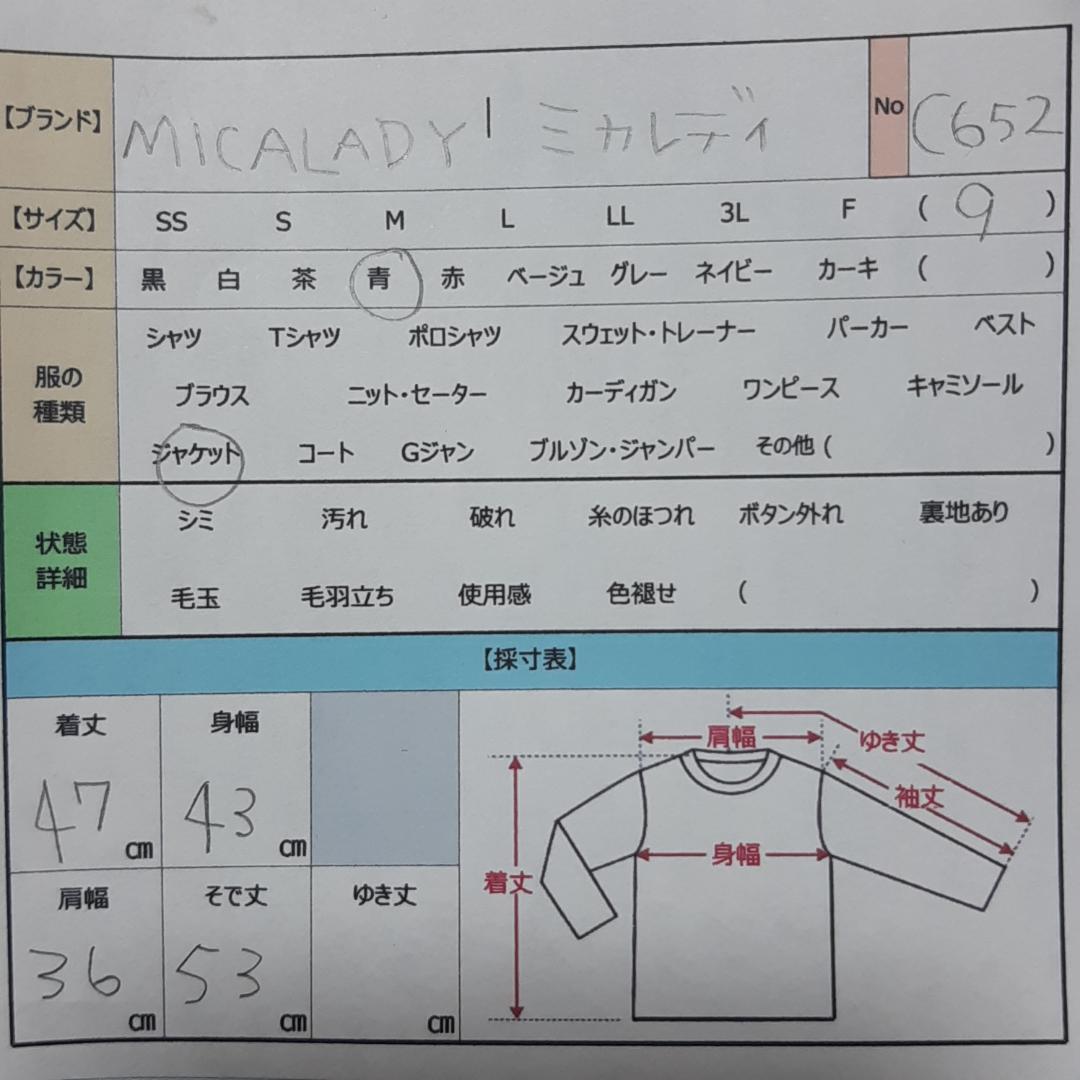 【ブランド】 MICALADY' ミカレディ No C652
【サイズ】 SS S M L LL 3L F ( 9 )
【カラー】 黒 白 茶 青 赤 ベージュ グレー ネイビー カーキ ( )
服の種類
シャツ Tシャツ ポロシャツ スウェット・トレーナー パーカー ベスト
ブラウス ニット・セーター カーディガン ワンピース キャミソール
ジャケット コート Gジャン ブルゾン・ジャンパー その他 ( )
状態詳細
シミ 汚れ 破れ 糸のほつれ ボタン外れ 裏地あり
毛玉 毛羽立ち 使用感 色褪せ ( )
【採寸表】
着丈 身幅
47 cm 43 cm
肩幅 そで丈 ゆき丈
36 cm 53 cm cm
肩幅 ゆき丈
袖丈
身幅
着丈